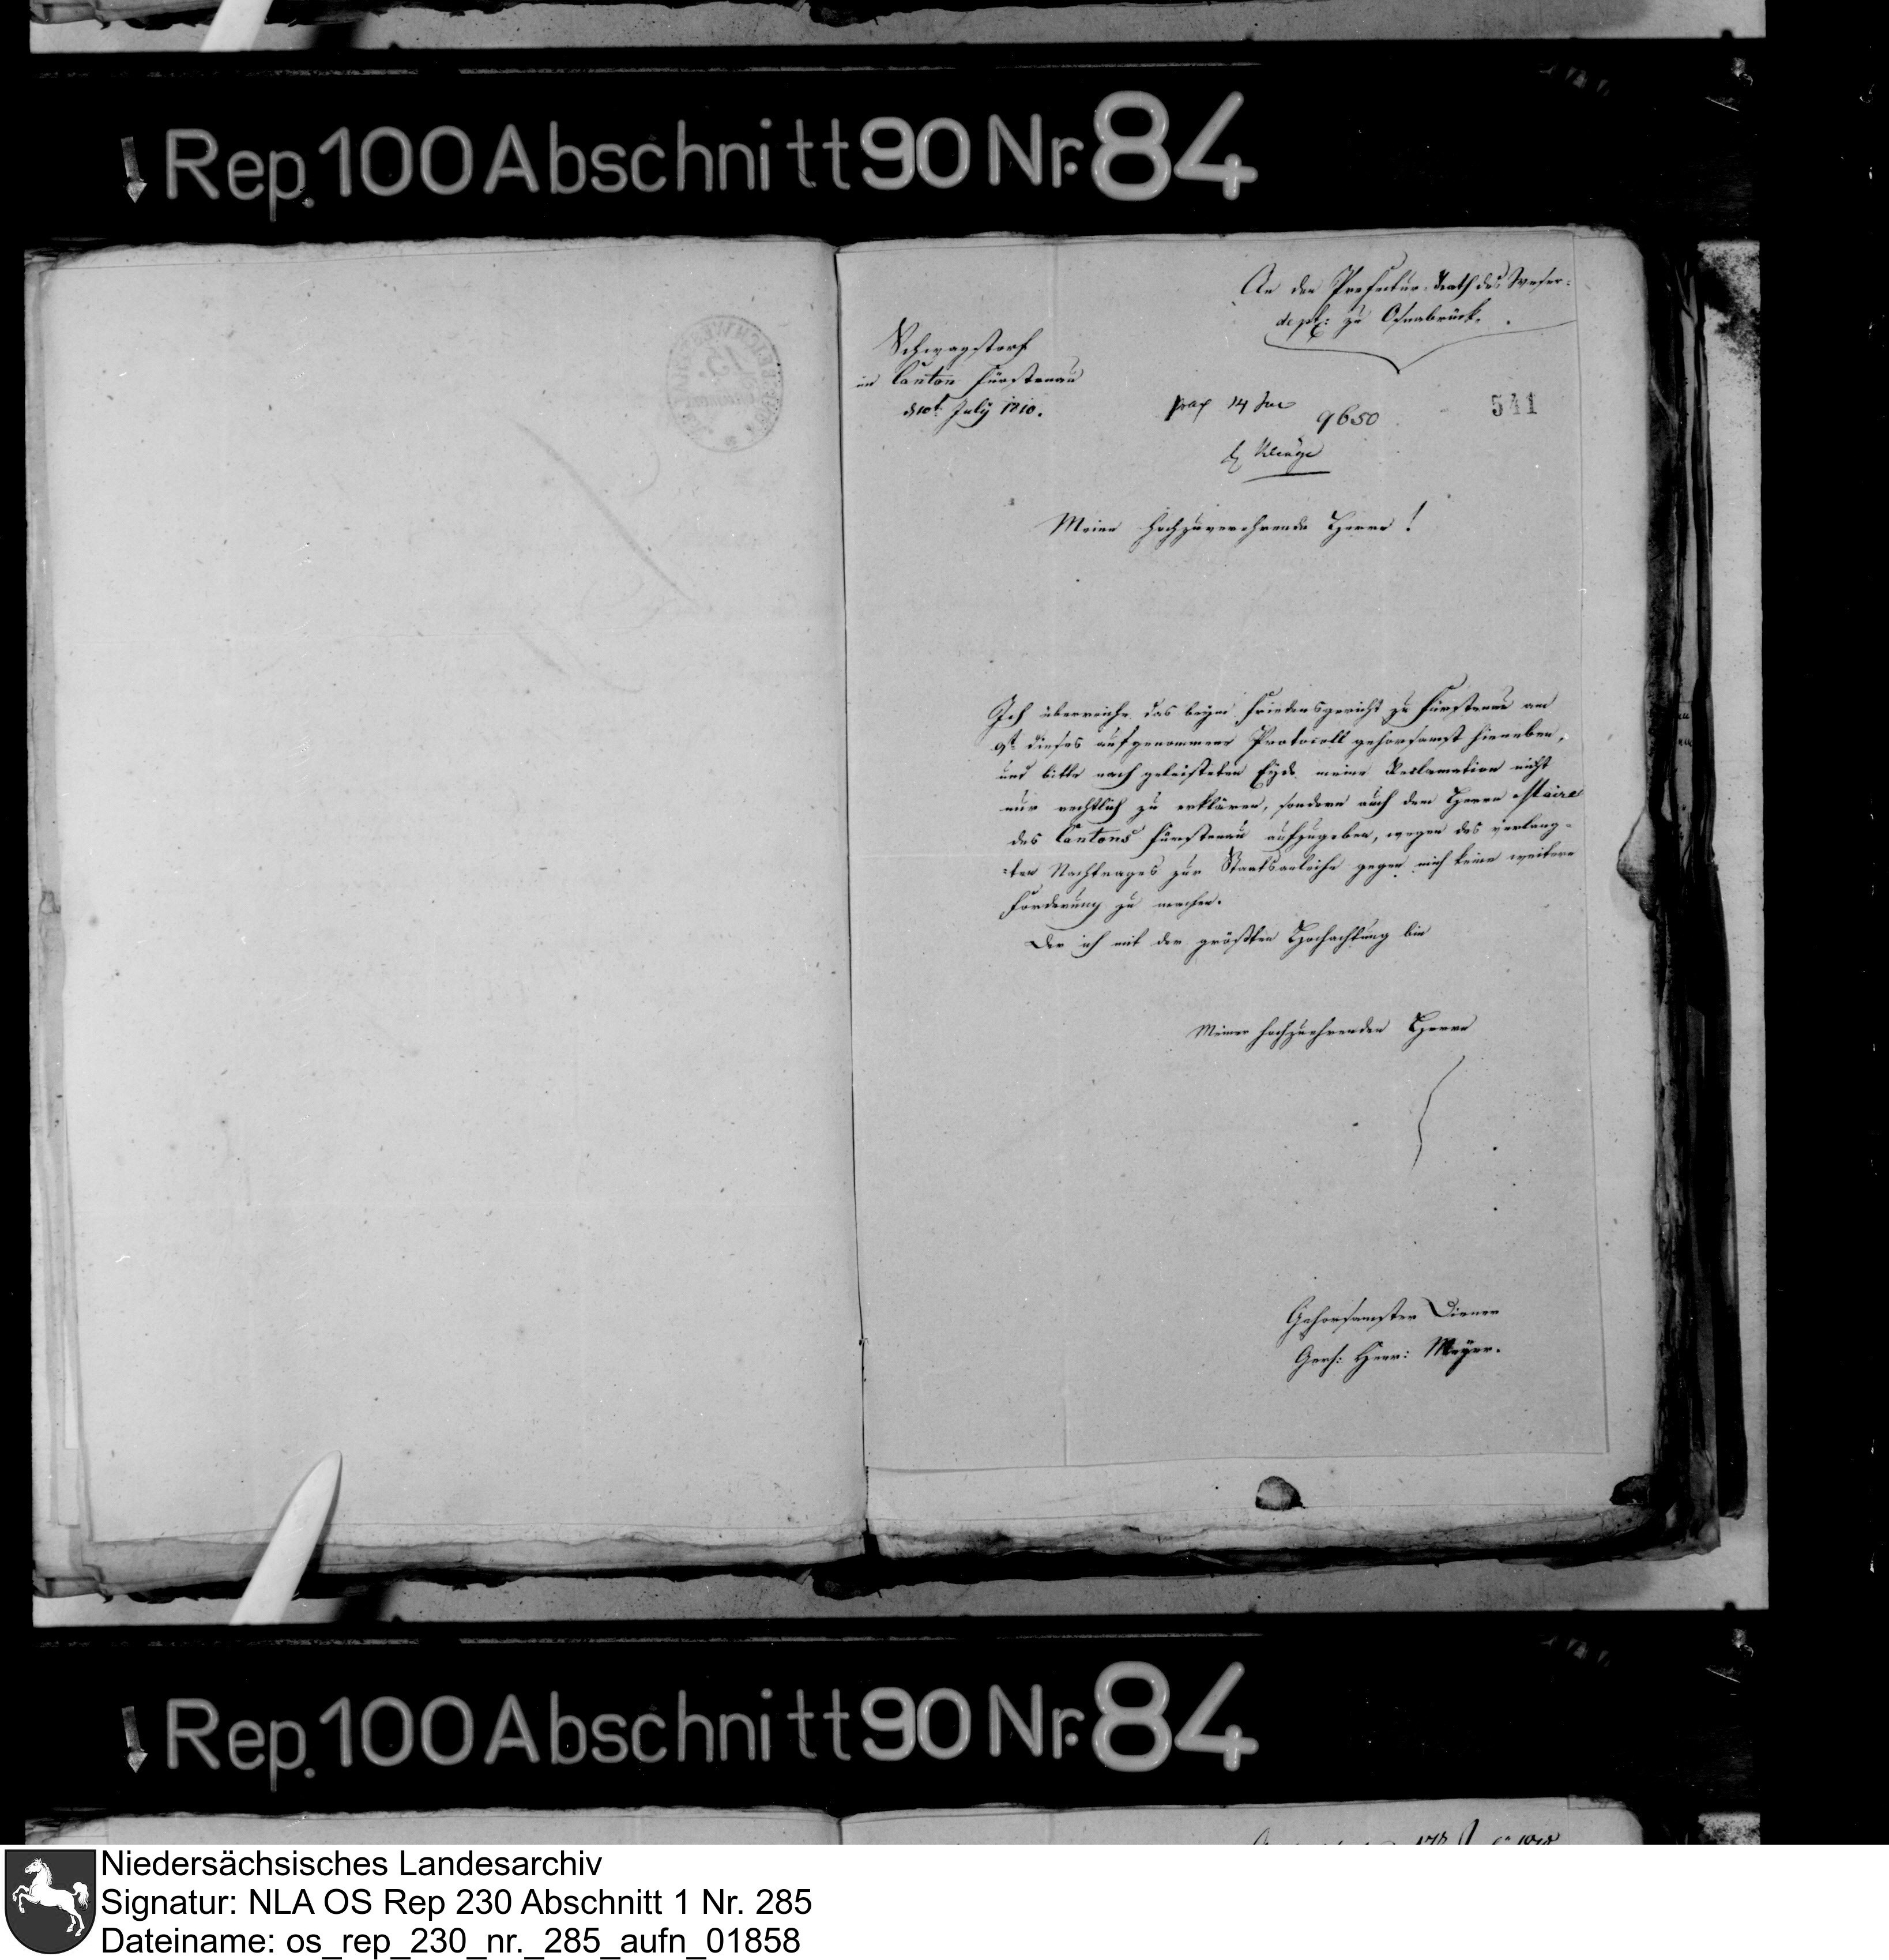 Rep. 100 Abschnitt 90 Nr. 84
An den Prefectur-Rath des Weser-
dept: zu Osnabrück.
Schwagstorf
im Canton Fürstenau
d 10t July 1810.
praes 14 Jul
9650
541
Meine Hochzuverehrende Herrn!
Ich überreiche das beym Friedensgericht zu Fürstenau am
9t dieses aufgenommene Protocoll gehorsamst hieneben,
und bitte nach geleisteten Eyde meine Reclamation nicht
nur rechtlich zu erklären, sondern auch dem Herrn Maire
des Cantons Fürstenau aufzugeben, wegen des verlang-
-ten Nachtrages zur Staatsanleihe gegen mich keine weitere
Forderung zu machen.
Der ich mit der größten Hochachtung bin
Meiner hochzuehrenden Herrn
Gehorsamster Diener
Gerh: Herm: Meyer.
Rep. 100 Abschnitt 90 Nr. 84
Niedersächsisches Landesarchiv
Signatur: NLA OS Rep 230 Abschnitt 1 Nr. 285
Dateiname: os_rep_230_nr._285_aufn_01858